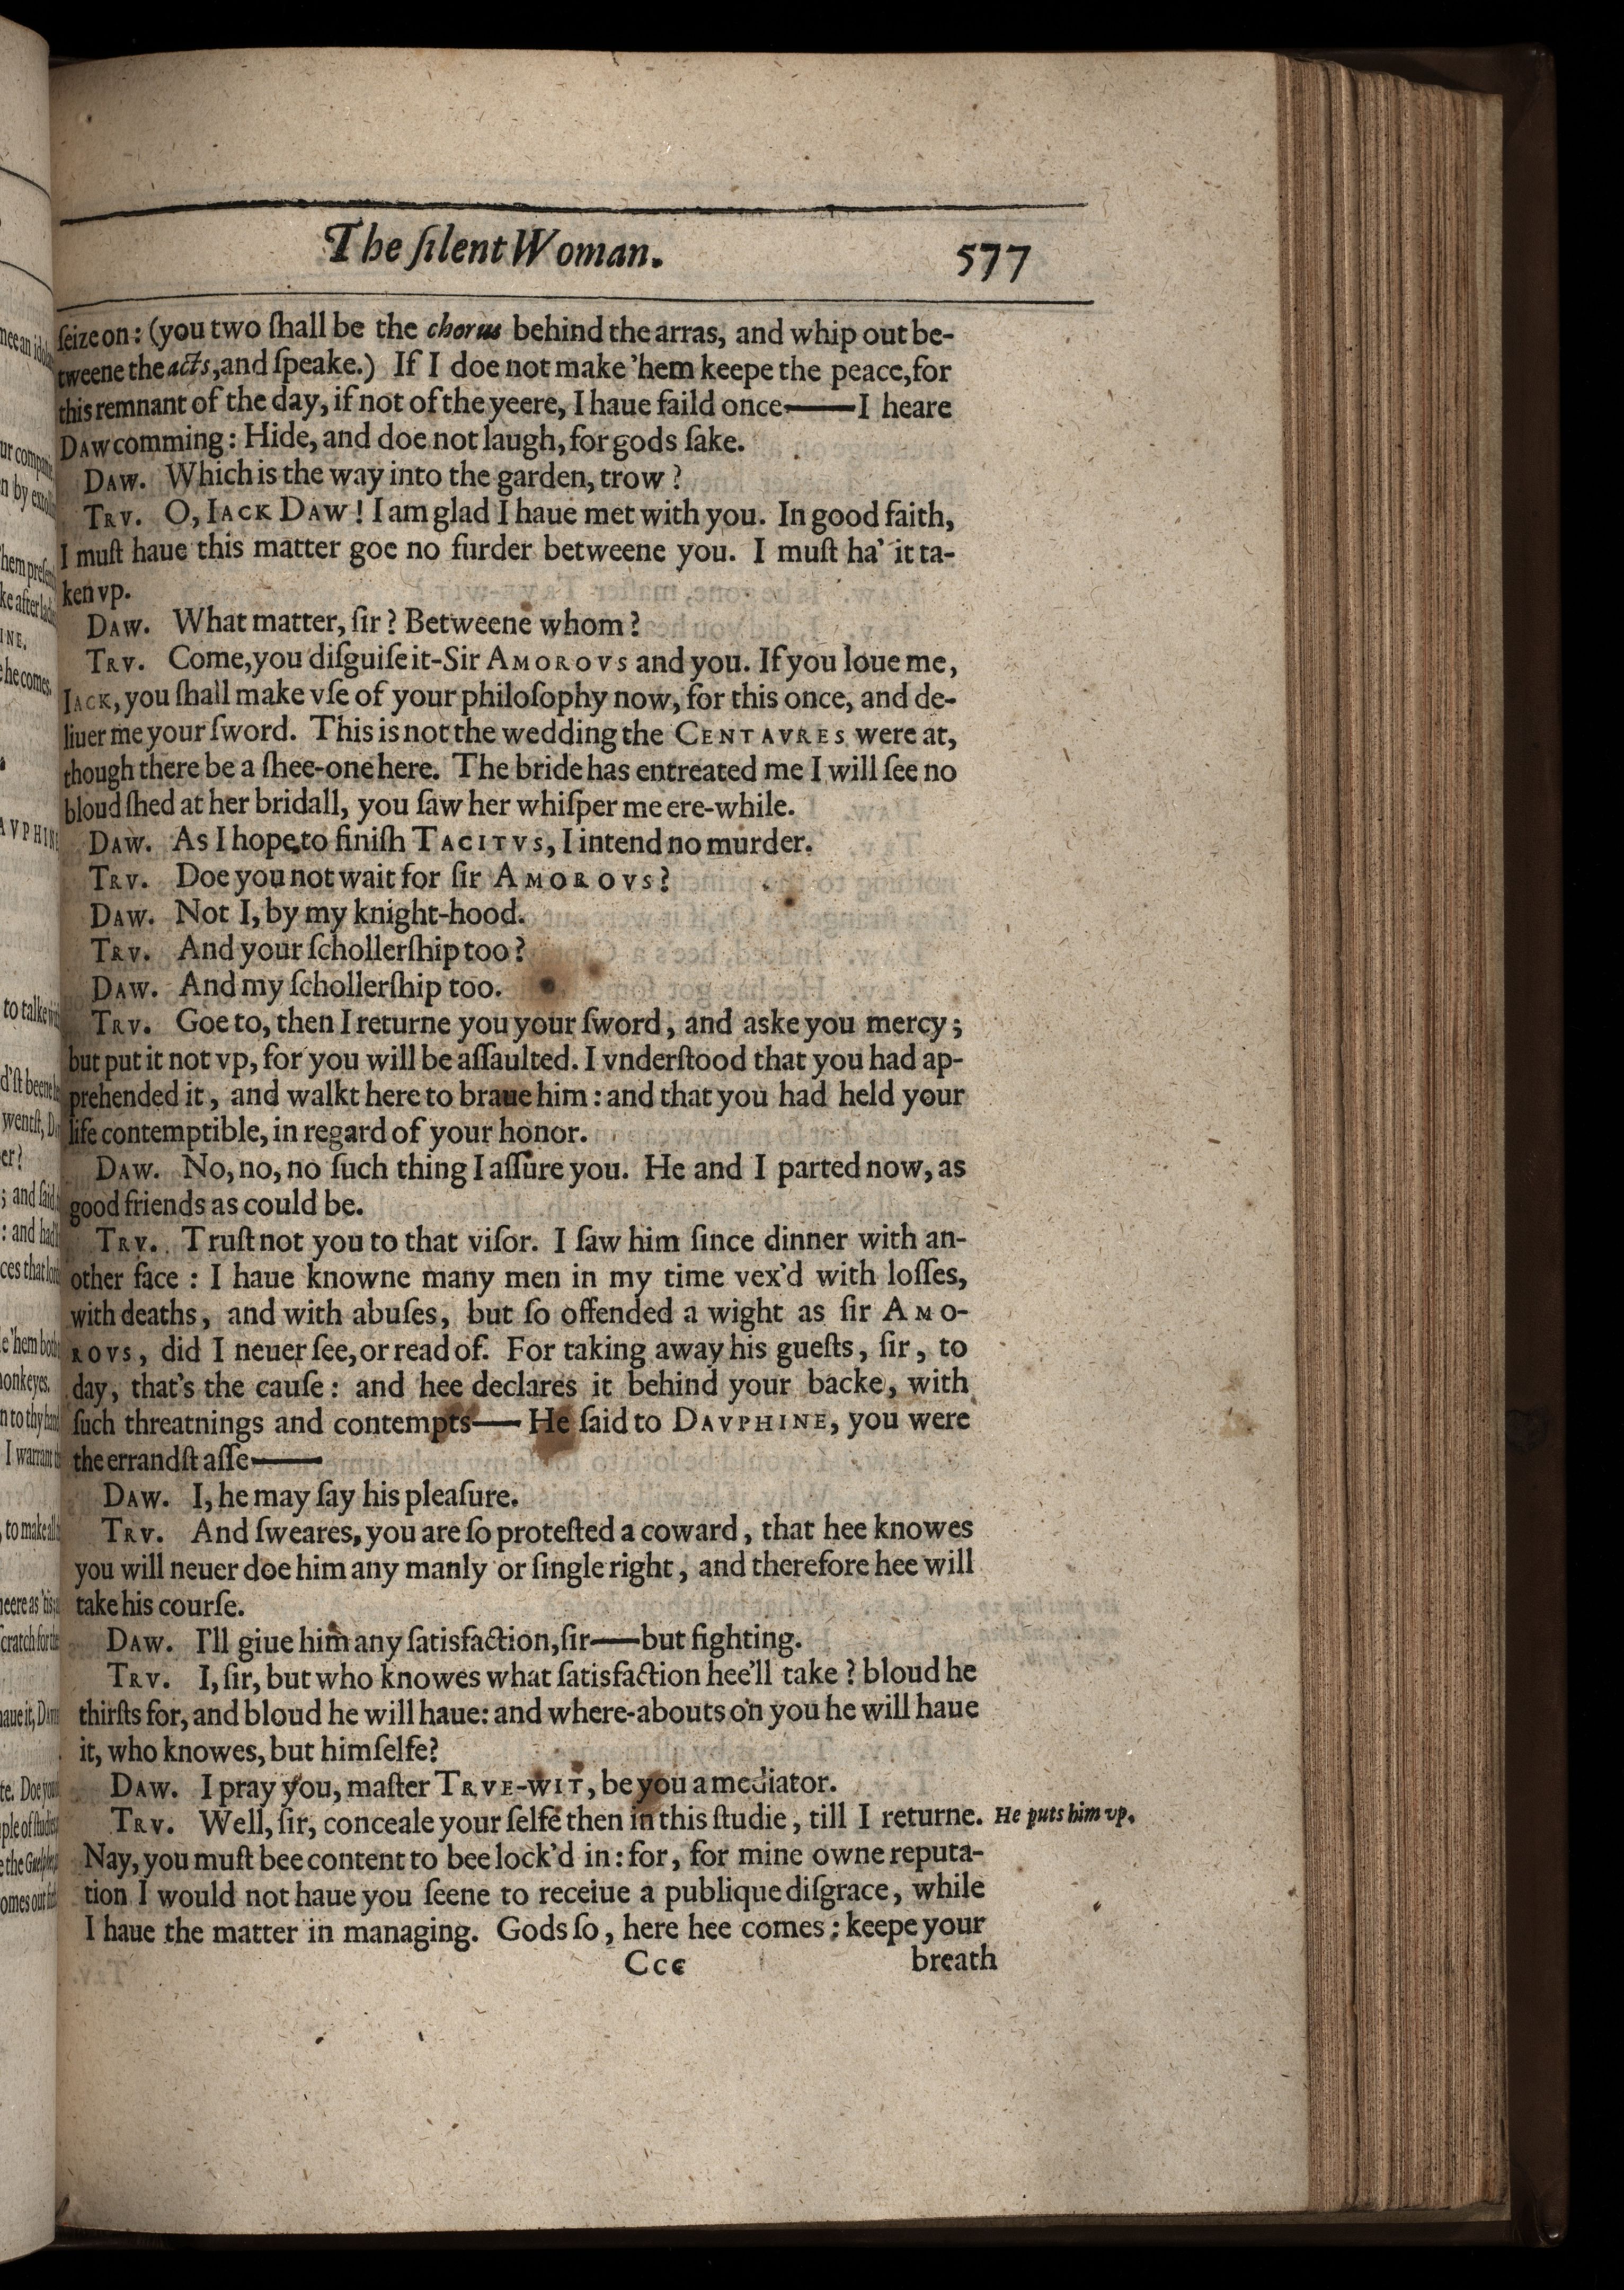 The ſilent Woman. 577
ſeize on: (you two ſhall be the chorus behind the arras, and whip out be-
tweene the acts, and ſpeake.) If I doe not make 'hem keepe the peace, for
this remnant of the day, if not of the yeere, I haue faild once——I heare
DAW comming: Hide, and doe not laugh, for gods ſake.
DAW. Which is the way into the garden, trow?
TRV. O, IACK DAW! I am glad I haue met with you. In good faith,
I muſt haue this matter goe no furder betweene you. I muſt ha' it ta-
ken vp.
DAW. What matter, ſir? Betweene whom?
TRV. Come, you diſguiſe it-Sir AMOROVS and you. If you loue me,
IACK, you ſhall make vſe of your philoſophy now, for this once, and de-
liuer me your ſword. This is not the wedding the CENTAVRES were at,
though there be a ſhee-one here. The bride has entreated me I will ſee no
bloud ſhed at her bridall, you ſaw her whiſper me ere-while.
DAW. As I hope to finiſh TACITVS, I intend no murder.
TRV. Doe you not wait for ſir AMOROVS?
DAW. Not I, by my knight-hood.
TRV. And your ſchollerſhip too?
DAW. And my ſchollerſhip too.
TRV. Goe to, then I returne you your ſword, and aske you mercy;
but put it not vp, for you will be aſſaulted. I vnderſtood that you had ap-
prehended it, and walkt here to braue him: and that you had held your
life contemptible, in regard of your honor.
DAW. No, no, no ſuch thing I aſſure you. He and I parted now, as
good friends as could be.
TRV. Truſt not you to that viſor. I ſaw him ſince dinner with an-
other face: I haue knowne many men in my time vex'd with loſſes,
with deaths, and with abuſes, but ſo offended a wight as ſir AMO-
ROVS, did I neuer ſee, or read of. For taking away his gueſts, ſir, to
day, that's the cauſe: and hee declares it behind your backe, with
ſuch threatnings and contempts—— He ſaid to DAVPHINE, you were
the errandſt aſſe——
DAW. I, he may ſay his pleaſure.
TRV. And ſweares, you are ſo proteſted a coward, that hee knowes
you will neuer doe him any manly or ſingle right, and therefore hee will
take his courſe.
DAW. I'll giue him any ſatisfaction, ſir——but fighting.
TRV. I, ſir, but who knowes what ſatisfaction hee'll take? bloud he
thirſts for, and bloud he will haue: and where-abouts on you he will haue
it, who knowes, but himſelfe?
DAW. I pray you, maſter TRVE-WIT, be you a mediator.
TRV. Well, ſir, conceale your ſelfe then in this ſtudie, till I returne. He puts him vp.
Nay, you muſt bee content to bee lock'd in: for, for mine owne reputa-
tion I would not haue you ſeene to receiue a publique diſgrace, while
I haue the matter in managing. Gods ſo, here hee comes: keepe your
Ccc breath